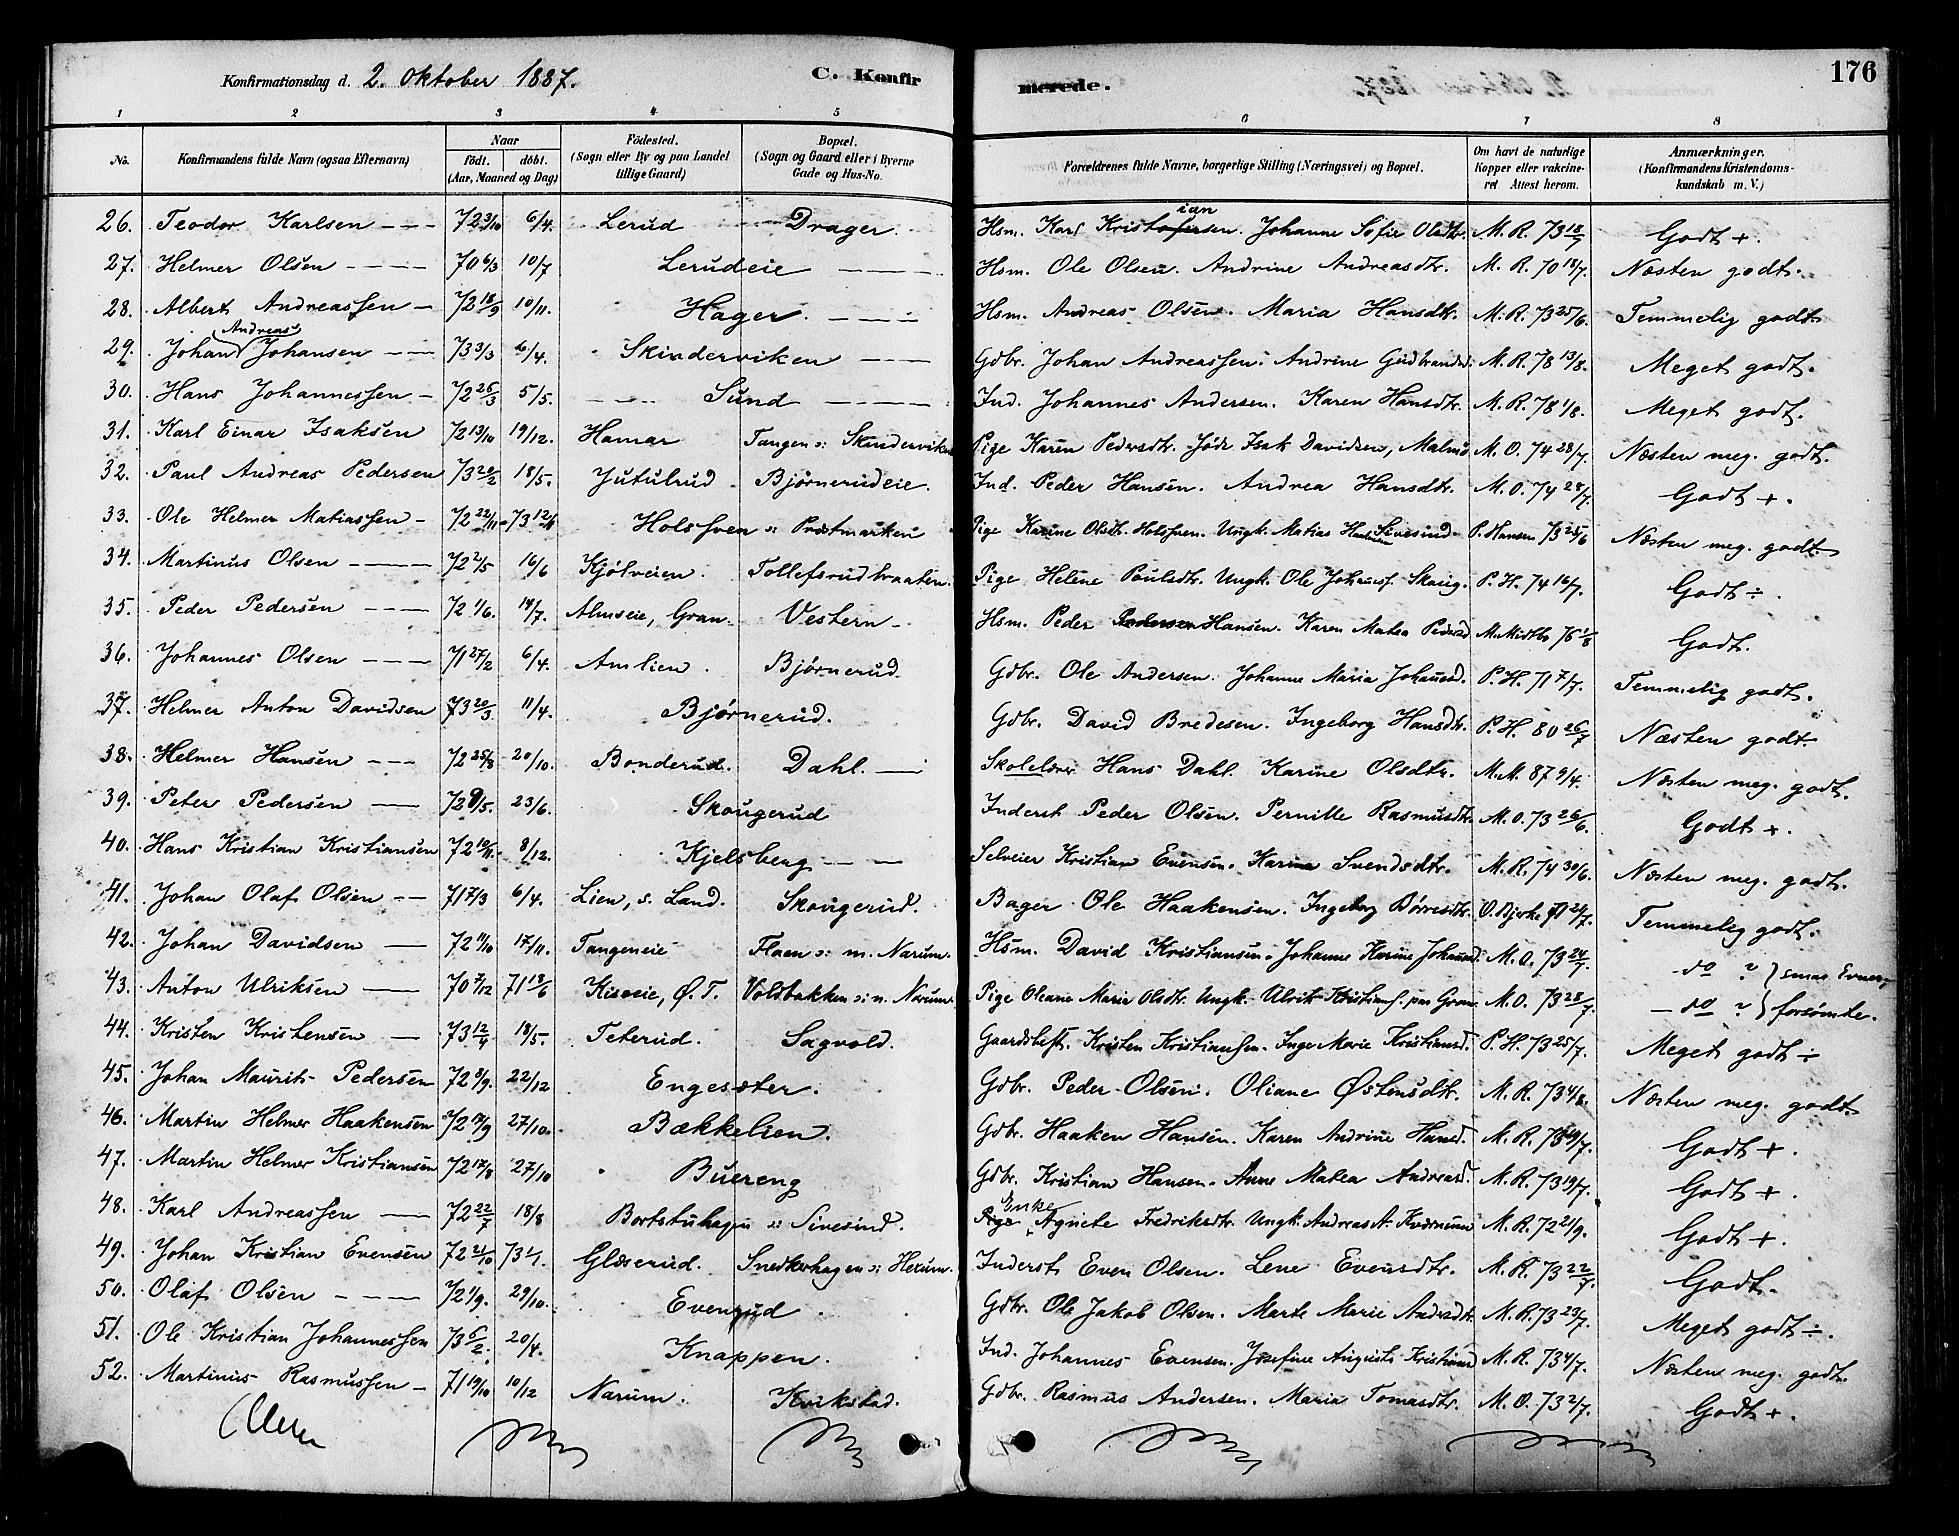 Konfirmationsdag d. 2. Oktober 1887.
C. Konfirmerede.
176
1 2 3 4 5 6 7 8
No. Konfirmandens fulde Navn (ogsaa Efternavn) Naar födt. döbt. (Aar, Maaned og Dag) Födested. (Sogn eller By og paa Landet tillige Gaard) Bopæl. (Sogn og Gaard eller i Byerne Gade og Hus-No. Forældrenes fulde Navne, borgerlige Stilling (Næringsvei) og Bopæl. Om havt de naturlige Kopper eller vakcineret Attest herom. Anmærkninger. (Konfirmandens Kristendomskundskab m. V.)
26. Teodor Karlsen 72 3/10 6/4. Lerud Drager. Hsm. Karl Kristofersen ian. Johanne Sofie Olsdtr. M. R. 73 18/7 Godt +.
27. Helmer Olsen 70 6/3 10/7 Lerudeie Hsm. Ole Olsen. Andrine Andreasdtr. M. R. 70 18/7. Næsten godt.
28. Albert Andreassen 72 18/9 10/11. Hager. Hsm. Andreas Olsen. Maria Hansdtr. M. R. 73 25/6. Temmelig godt
29. Johan Andreas Johansen 73 3/3 6/4. Skinderviken Gdbr. Johan Andreassen. Andrine Gudbrandsd. M. R. 78 13/8. Meget godt.
30. Hans Johannessen 72 26/3 5/5. Sund Ind. Johannes Andersen. Karen Hansdtr. M. R. 78 1/8. Meget godt.
31. Karl Einar Isaksen 72 13/10 19/12. Hamar Tangen s: Skinderviken Pige Karen Pedersdtr. Jøde Isak Davidsen, Malmö M. O. 74 28/7. Næsten meg. godt.
32. Paul Andreas Pedersen 73 20/2 18/5. Jutulrud Bjørnerudeie. Ind. Peder Hansen. Andrea Hansdtr. M. O. 74 28/7. Godt +.
33. Ole Helmer Matiassen 72 22/11 73 12/6 Holsfven s: Præstmarken Pige Karine Olsdt. Holsfven. Ungk. Matias Hansen Sivesind. P. Hansen 73 25/6 Næsten meg. godt
34. Martinus Olsen 72 2/5 16/6 Kjølveien. Tollefsrudbraaten. Pige Helene Paulsdtr. Ungk. Ole Johansf. Skoug. P. H. 74 16/7. Godt ÷.
35. Peder Pedersen 72 1/6. 14/7. Almseie, Gran. Vestern Hsm. Peder Pedersen Hansen. Karen Matea Pedersd. M. Midtbr 76 1/8 Godt.
36. Johannes Olsen 71 27/2 6/4. Amlien. Bjørnerud. Gdbr. Ole Andersen. Johanne Maria Johansd. P. H. 71 7/7. Temmelig godt.
37. Helmer Anton Davidsen 73 20/3. 11/4. Bjørnerud. Gdbr. David Bredesen. Ingeborg Hansdtr. P. H. 80 26/7 Næsten godt.
38. Helmer Hansen 72 25/8 20/10. Bonderud. Dahl. Skolelærer Hans Dahl. Karine Olsdtr. M. M. 87 9/4. Næsten meg. godt.
39. Peter Pedersen 72 9/5. 23/6. Skougerud Inderst Peder Olsen. Pernille Rasmusdtr. M. O. 73 26/6. Godt +.
40. Hans Kristian Kristiansen 72 10/11. 8/12. Kjelsberg Selveier Kristian Evensen. Karine Svendsdtr. M. R. 74 30/6. Næsten meg. godt.
41. Johan Olaf Olsen 71 7/3 6/4. Lien, s. Land. Skougerud. Bager Ole Haakensen. Ingeborg Børresdtr. O. Bjerke 71 24/7. Temmelig godt.
42. Johan Davidsen 72 11/10 17/11. Tangeneie Flaen s: m. Narum. Hsm. David Kristiansen. Johanne Karine Johansd. M. O. 73 24/7. do ? } smaa Evner,
43. Anton Ulriksen 70 7/12 71 18/6 Kiseeie, Ø. T. Voldbakken s: n. Narum. Pige Oleane Marie Olsdtr. Ungk. Ulrik Kristiansf. paa Gran. M. O. 73 28/7. do ? } forsömte.
44. Kristen Kristensen 73 12/4 18/5. Teterud. Sagvold. Gaardsbest. Kristen Kristiansen. Inge Marie Kristiansd. P. H. 73 25/7. Meget godt ÷
45. Johan Maurits Pedersen 72 8/9. 22/12 Engesæter. Gdbr. Peder Olsen. Oliane Østensdtr. M. R. 73 4/8. Næsten meg. godt
46. Martin Helmer Haakensen 72 19/9 27/10. Bækkelien. Gdbr. Haaken Hansen. Karen Andrine Hansd. M. R. 73 19/7. Godt +.
47. Martin Helmer Kristiansen 72 17/8 27/10 Buereng Gdbr. Kristian Hansen. Anne Matea Andreasd. M. R. 73 19/7. Godt +.
48. Karl Andreassen 72 22/7 18/8 Bortstuhagen s: Sivesind. Pige Enke Agnete Fredriksdtr. Ungk. Andreas A. Kværnum M. R. 72 21/9. Godt +.
49. Johan Kristian Evensen 72 21/10 73 1/1. Glæserud. Snedkerhagen s: Hexum. Inderst Even Olsen. Lene Evensdtr. M. R. 73 22/7. Godt.
50. Olaf Olsen 72 1/9. 29/10. Evenrud. Gdbr. Ole Jakob Olsen. Marte Marie Andersdtr. M. R. 73 23/7. Meget godt ÷.
51. Ole Kristian Johannessen 73 5/2. 20/4. Knappen. Ind. Johannes Evensen. Josefine Auguste Kristiansd. M. R. 73 4/7. Næsten meg. godt.
52. Martinus Rasmussen 71 19/10 10/12 Narum. Kvikstad. Gdbr. Rasmus Andersen. Maria Tomasdtr. M. O. 73 2/7. Godt +.